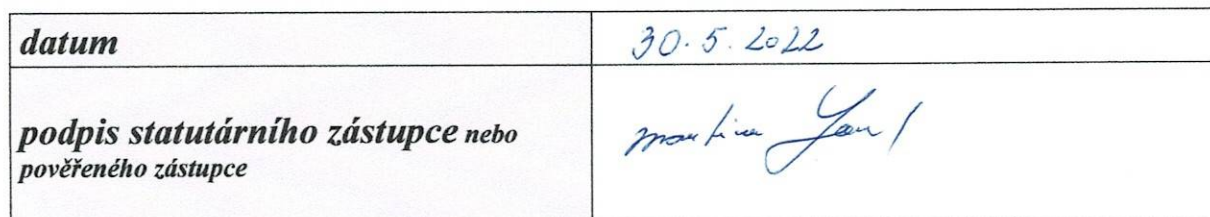 datum 30.5.2022
podpis statutárního zástupce nebo
pověřeného zástupce